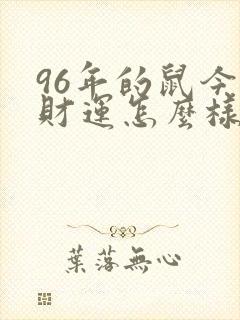 96年的鼠今
財運怎麼樣
葉落無心